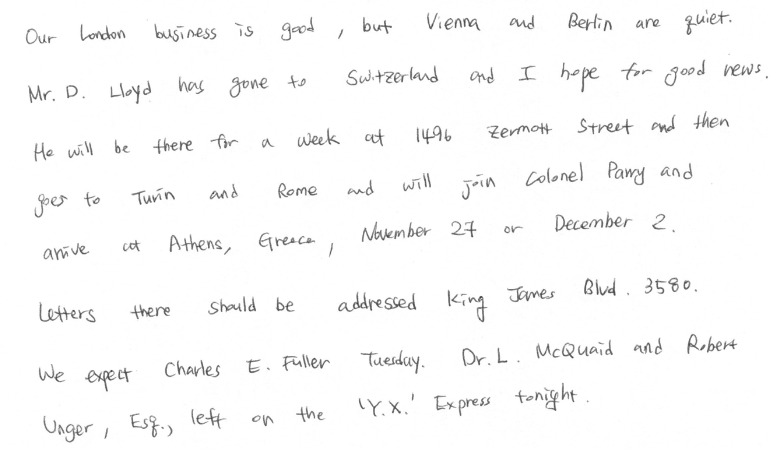 Our London business is good, but Vienna and Berlin are quiet.
Mr. D. Lloyd has gone to Switzerland and I hope for good news.
He will be there for a week at 1496 Zermott Street and then
goes to Turin and Rome and will join Colonel Parry and
arrive at Athens, Greece, November 27 or December 2.
Letters there should be addressed King James Blvd. 3580.
We expect Charles E. Fuller Tuesday. Dr. L. McQuaid and Robert
Unger, Esq., left on the 'Y.X.' Express tonight.